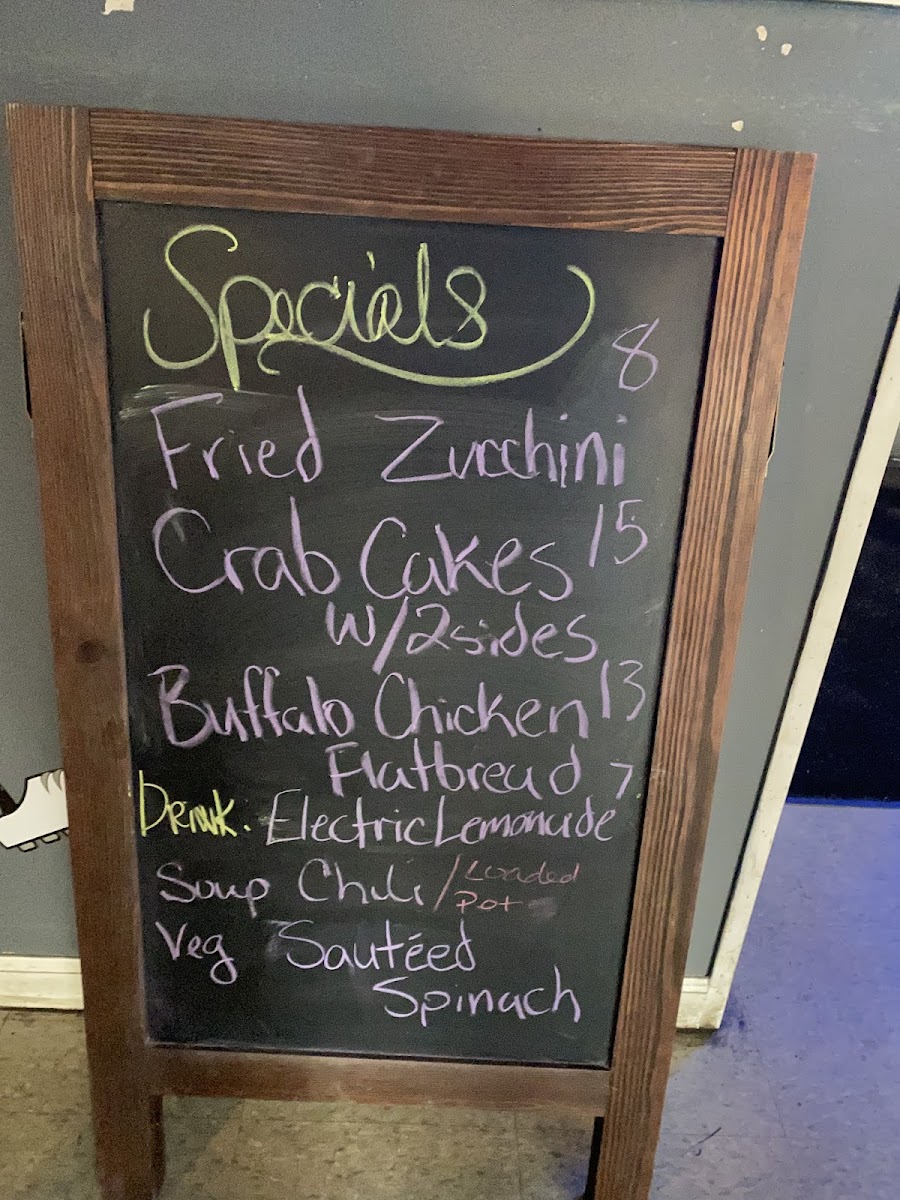 Specials
8
Fried Zucchini
Crab Cakes 15
W/2sides
Buffalo Chicken 13
Flatbread 7
Drink. Electric Lemonade
Soup Chili / Loaded
Pot
Veg Sautéed
Spinach